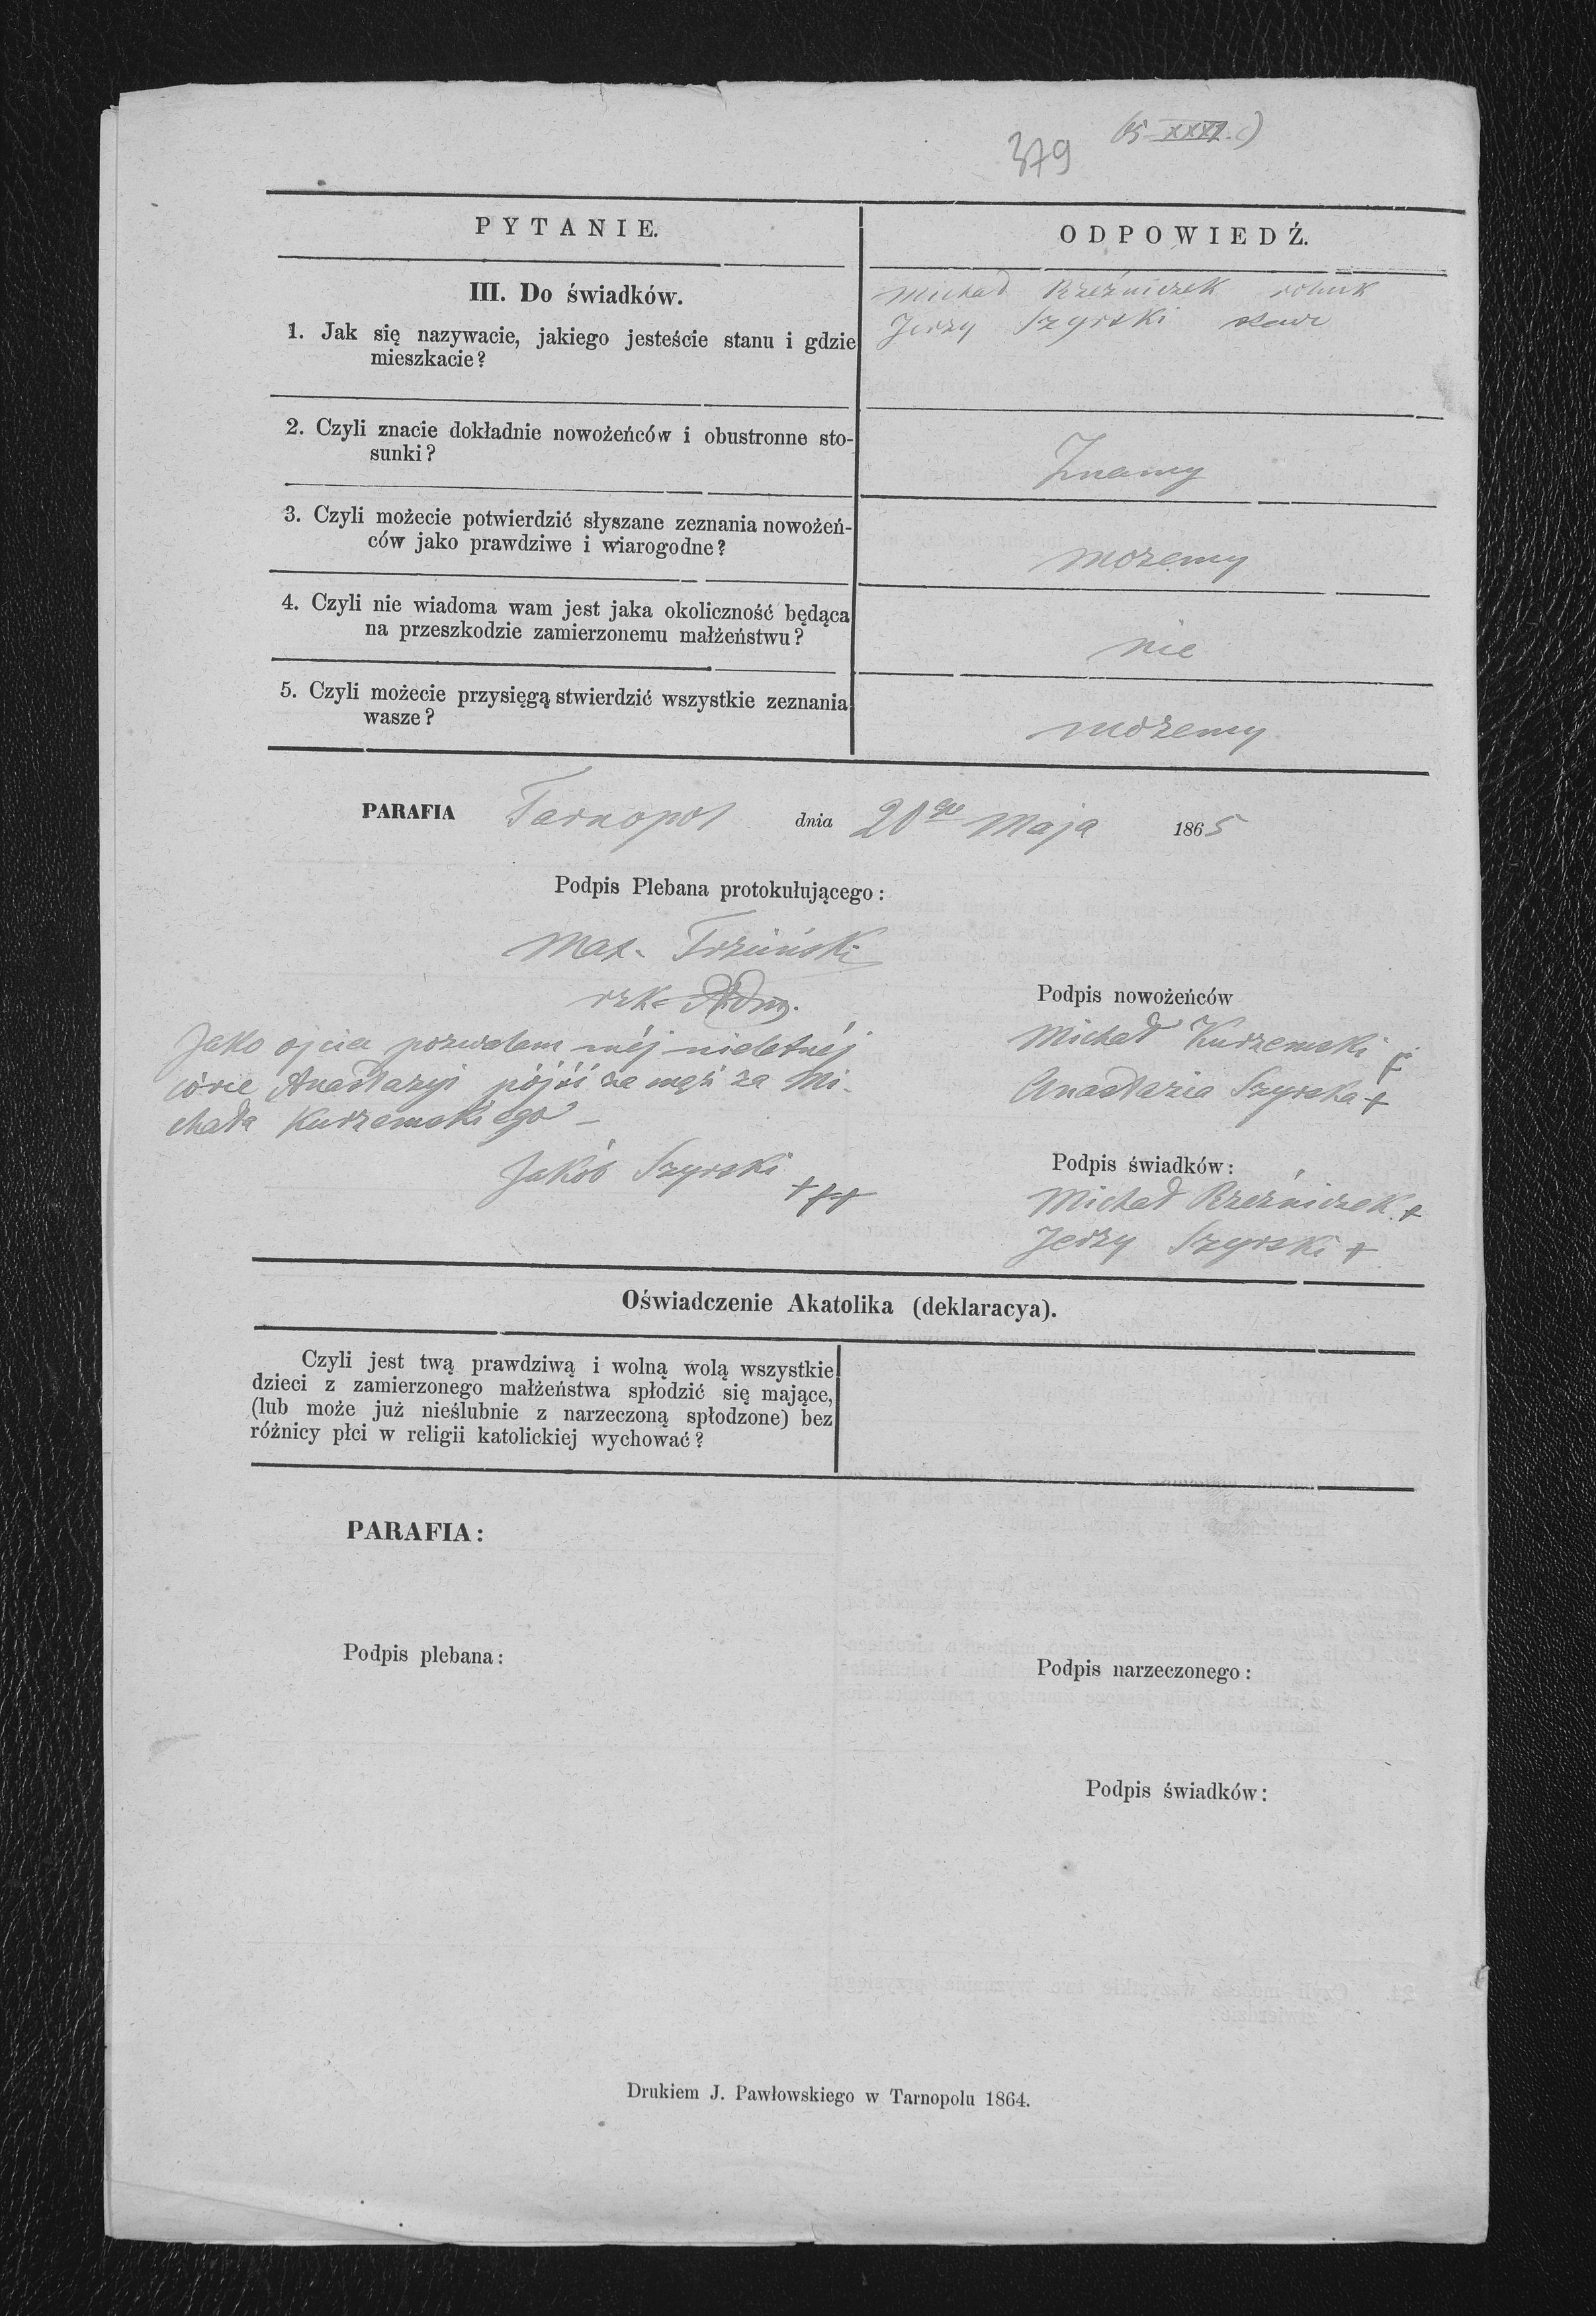 379
PYTANIE.
ODPOWIEDŹ.
III. Do świadków.
1. Jak się nazywacie, jakiego jesteście stanu i gdzie
mieszkacie?
Michał Rzeźniczek rolnik
Jerzy Szyrski
2. Czyli znacie dokładnie nowożeńców i obustronne sto-
sunki?
Znamy
3. Czyli możecie potwierdzić słyszane zeznania nowożeń-
ców jako prawdziwe i wiarogodne?
możemy
4. Czyli nie wiadoma wam jest jaka okoliczność będąca
na przeszkodzie zamierzonemu małżeństwu?
nie
5. Czyli możecie przysięgą stwierdzić wszystkie zeznania
wasze?
możemy
PARAFIA Tarnopol dnia 20go Maja 1865
Podpis Plebana protokułującego:
Mat. 
rzk. Adm.
Jako ojciec pozwalam mej nieletnéj
córce Anastazyi pójść za mąż za Mi-
chała Kurzemskiego –
Jakób Szyrski +++
Podpis nowożeńców
Michał Kurzemski +
Anastazia Szyrska +
Podpis świadków:
Michał Rzeźniczek +
Jerzy Szyrski +
Oświadczenie Akatolika (deklaracya).
Czyli jest twą prawdziwą i wolną wolą wszystkie
dzieci z zamierzonego małżeństwa spłodzić się mające,
(lub może już nieślubnie z narzeczoną spłodzone) bez
różnicy płci w religii katolickiej wychować?
PARAFIA:
Podpis plebana:
Podpis narzeczonego:
Podpis świadków:
Drukiem J. Pawłowskiego w Tarnopolu 1864.